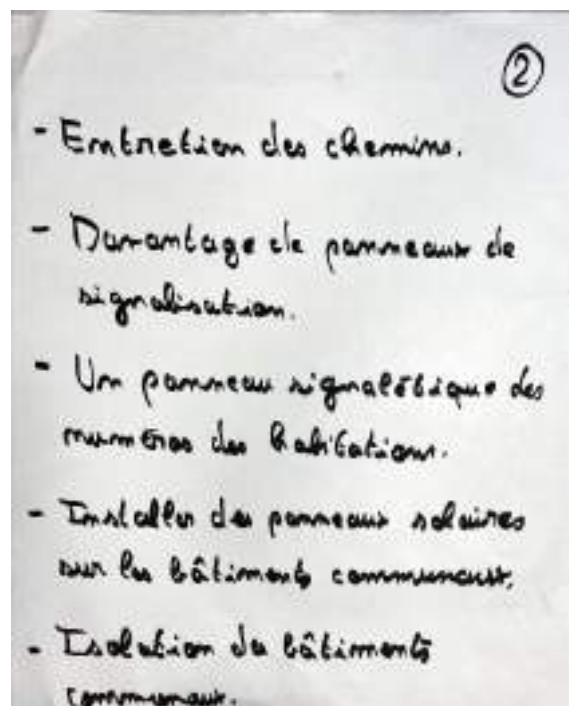 2
- Entretien des chemins.
- Davantage de panneaux de
signalisation.
- Un panneau signalétique des
numéros des habitations.
- Installer des panneaux solaires
sur les bâtiments communaux.
- Isolation des bâtiments
communaux.